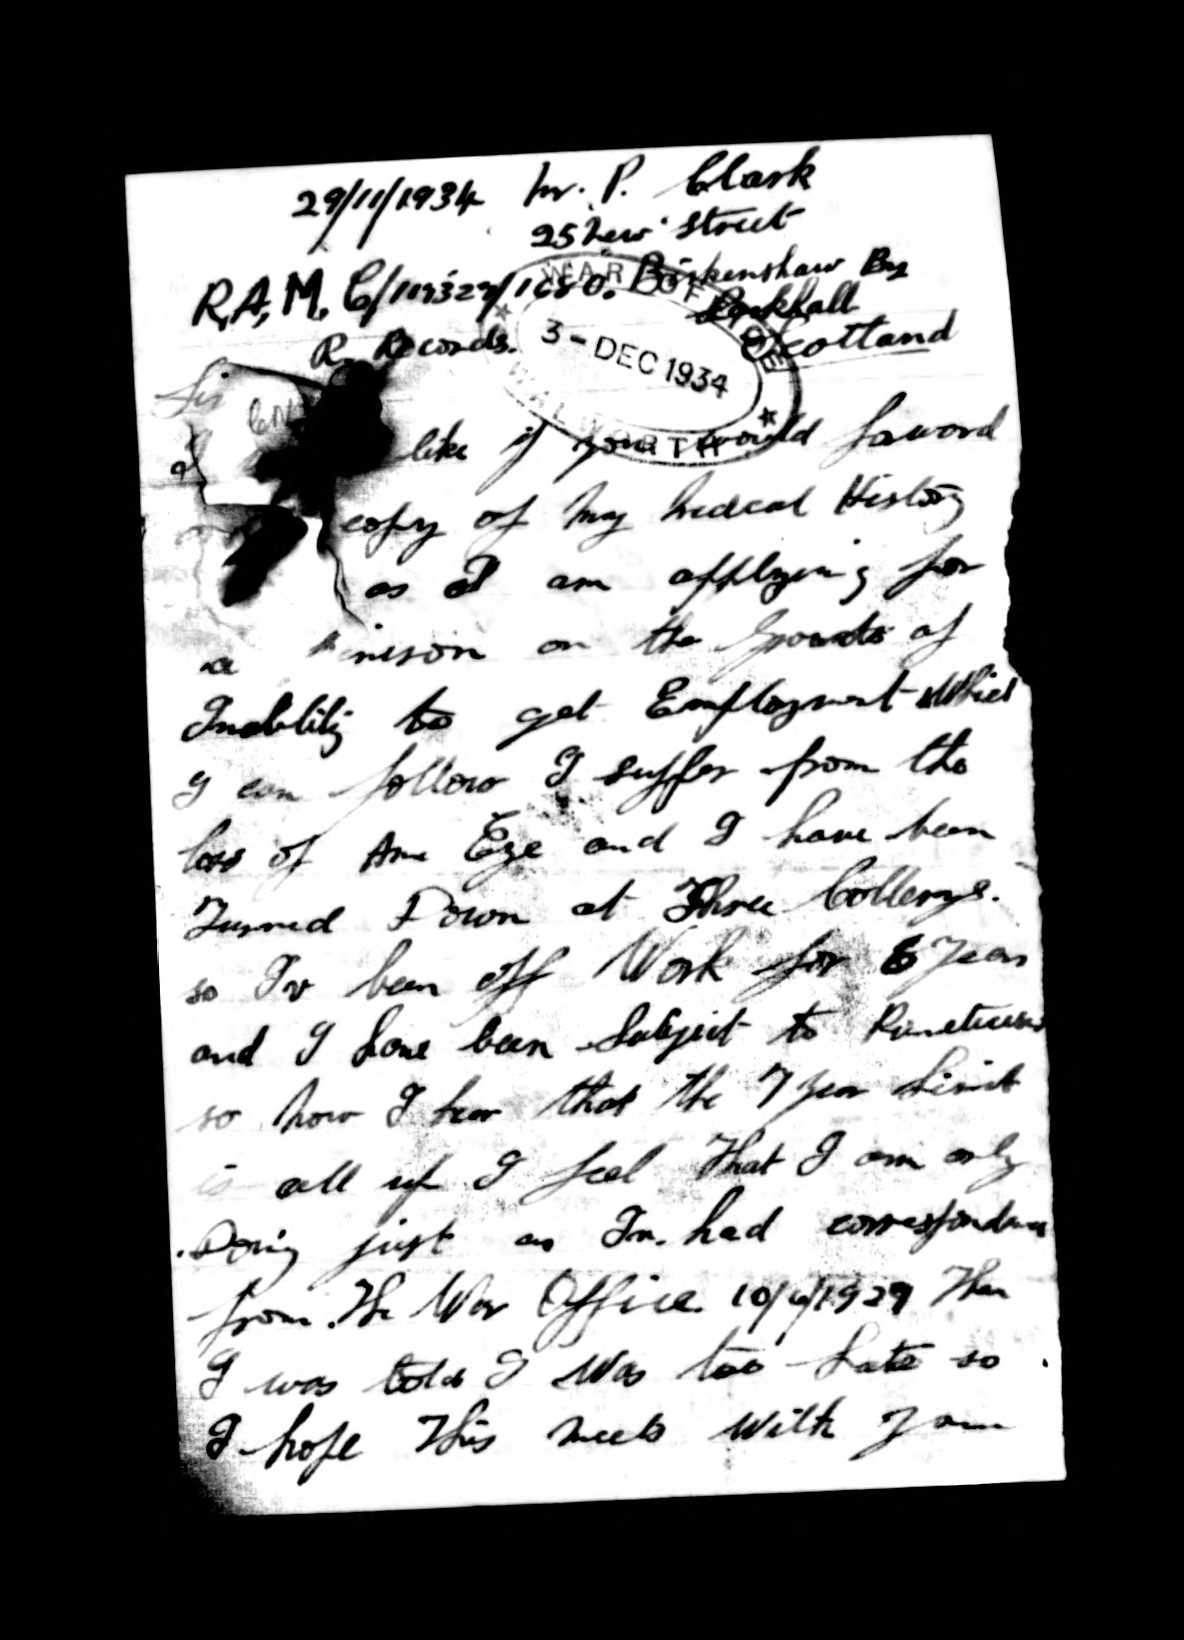 29/11/1934 Mr. P. Clark
25 New Street
R.A.M.C/119329/1680. Birkenshaw By
Larkhall
R. Records. Scotland
WAR OFFICE
3 - DEC 1934
WALWORTH
Sir
I like if you would faword
copy of my Medcal History
as I am applying for
a on the Grounds of
Inablity to get Employment Which
I can follow I suffer from the
loss of One Eye and I have been
Turned Down at Three Collerys.
so Iv been off Work for 6 Years
and I have been Subject to
so now I hear that the 7 year Limit
is all up I feel That I am only
Doing just as Iv. had correspondance
from The War Office 10/6/1929 Then
I was told I Was too Late so
I hope This meets With your